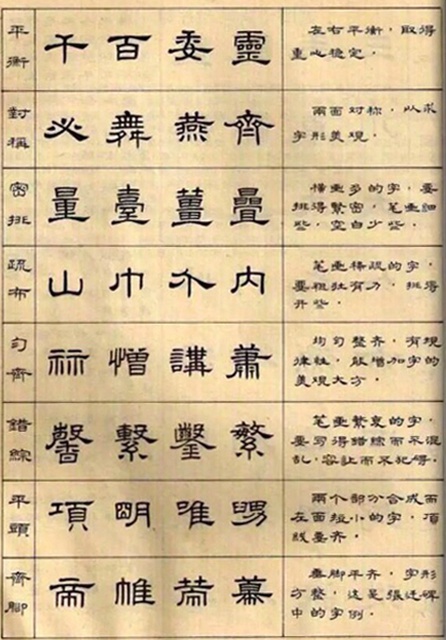 平衡 千 百 委 靈
左右平衡，取得
重心稳定．
對稱 必 舞 燕 齊
兩面对称，以求
字形美观．
密排 量 臺 薑 疊
横画多的字，要
排得繁密，笔画细
些，空白少些．
疏布 山 巾 介 内
笔画稀疏的字，
要粗壮有力，排得
开些．
匀齊 講 蕭
均匀整齐，有规
律性，能增加字的
美观大方．
錯綜 馨 繫 鑿 繁
笔画繁衷的字，
要写得錯綜而不混
乱，容让而不犯碍．
平頭 項 明 唯
兩个部分合成而
左面短小的字，項
线要齐．
齊腳 帝 帷
垂脚平齐，字形
方整，这是张迁碑
中的字例．